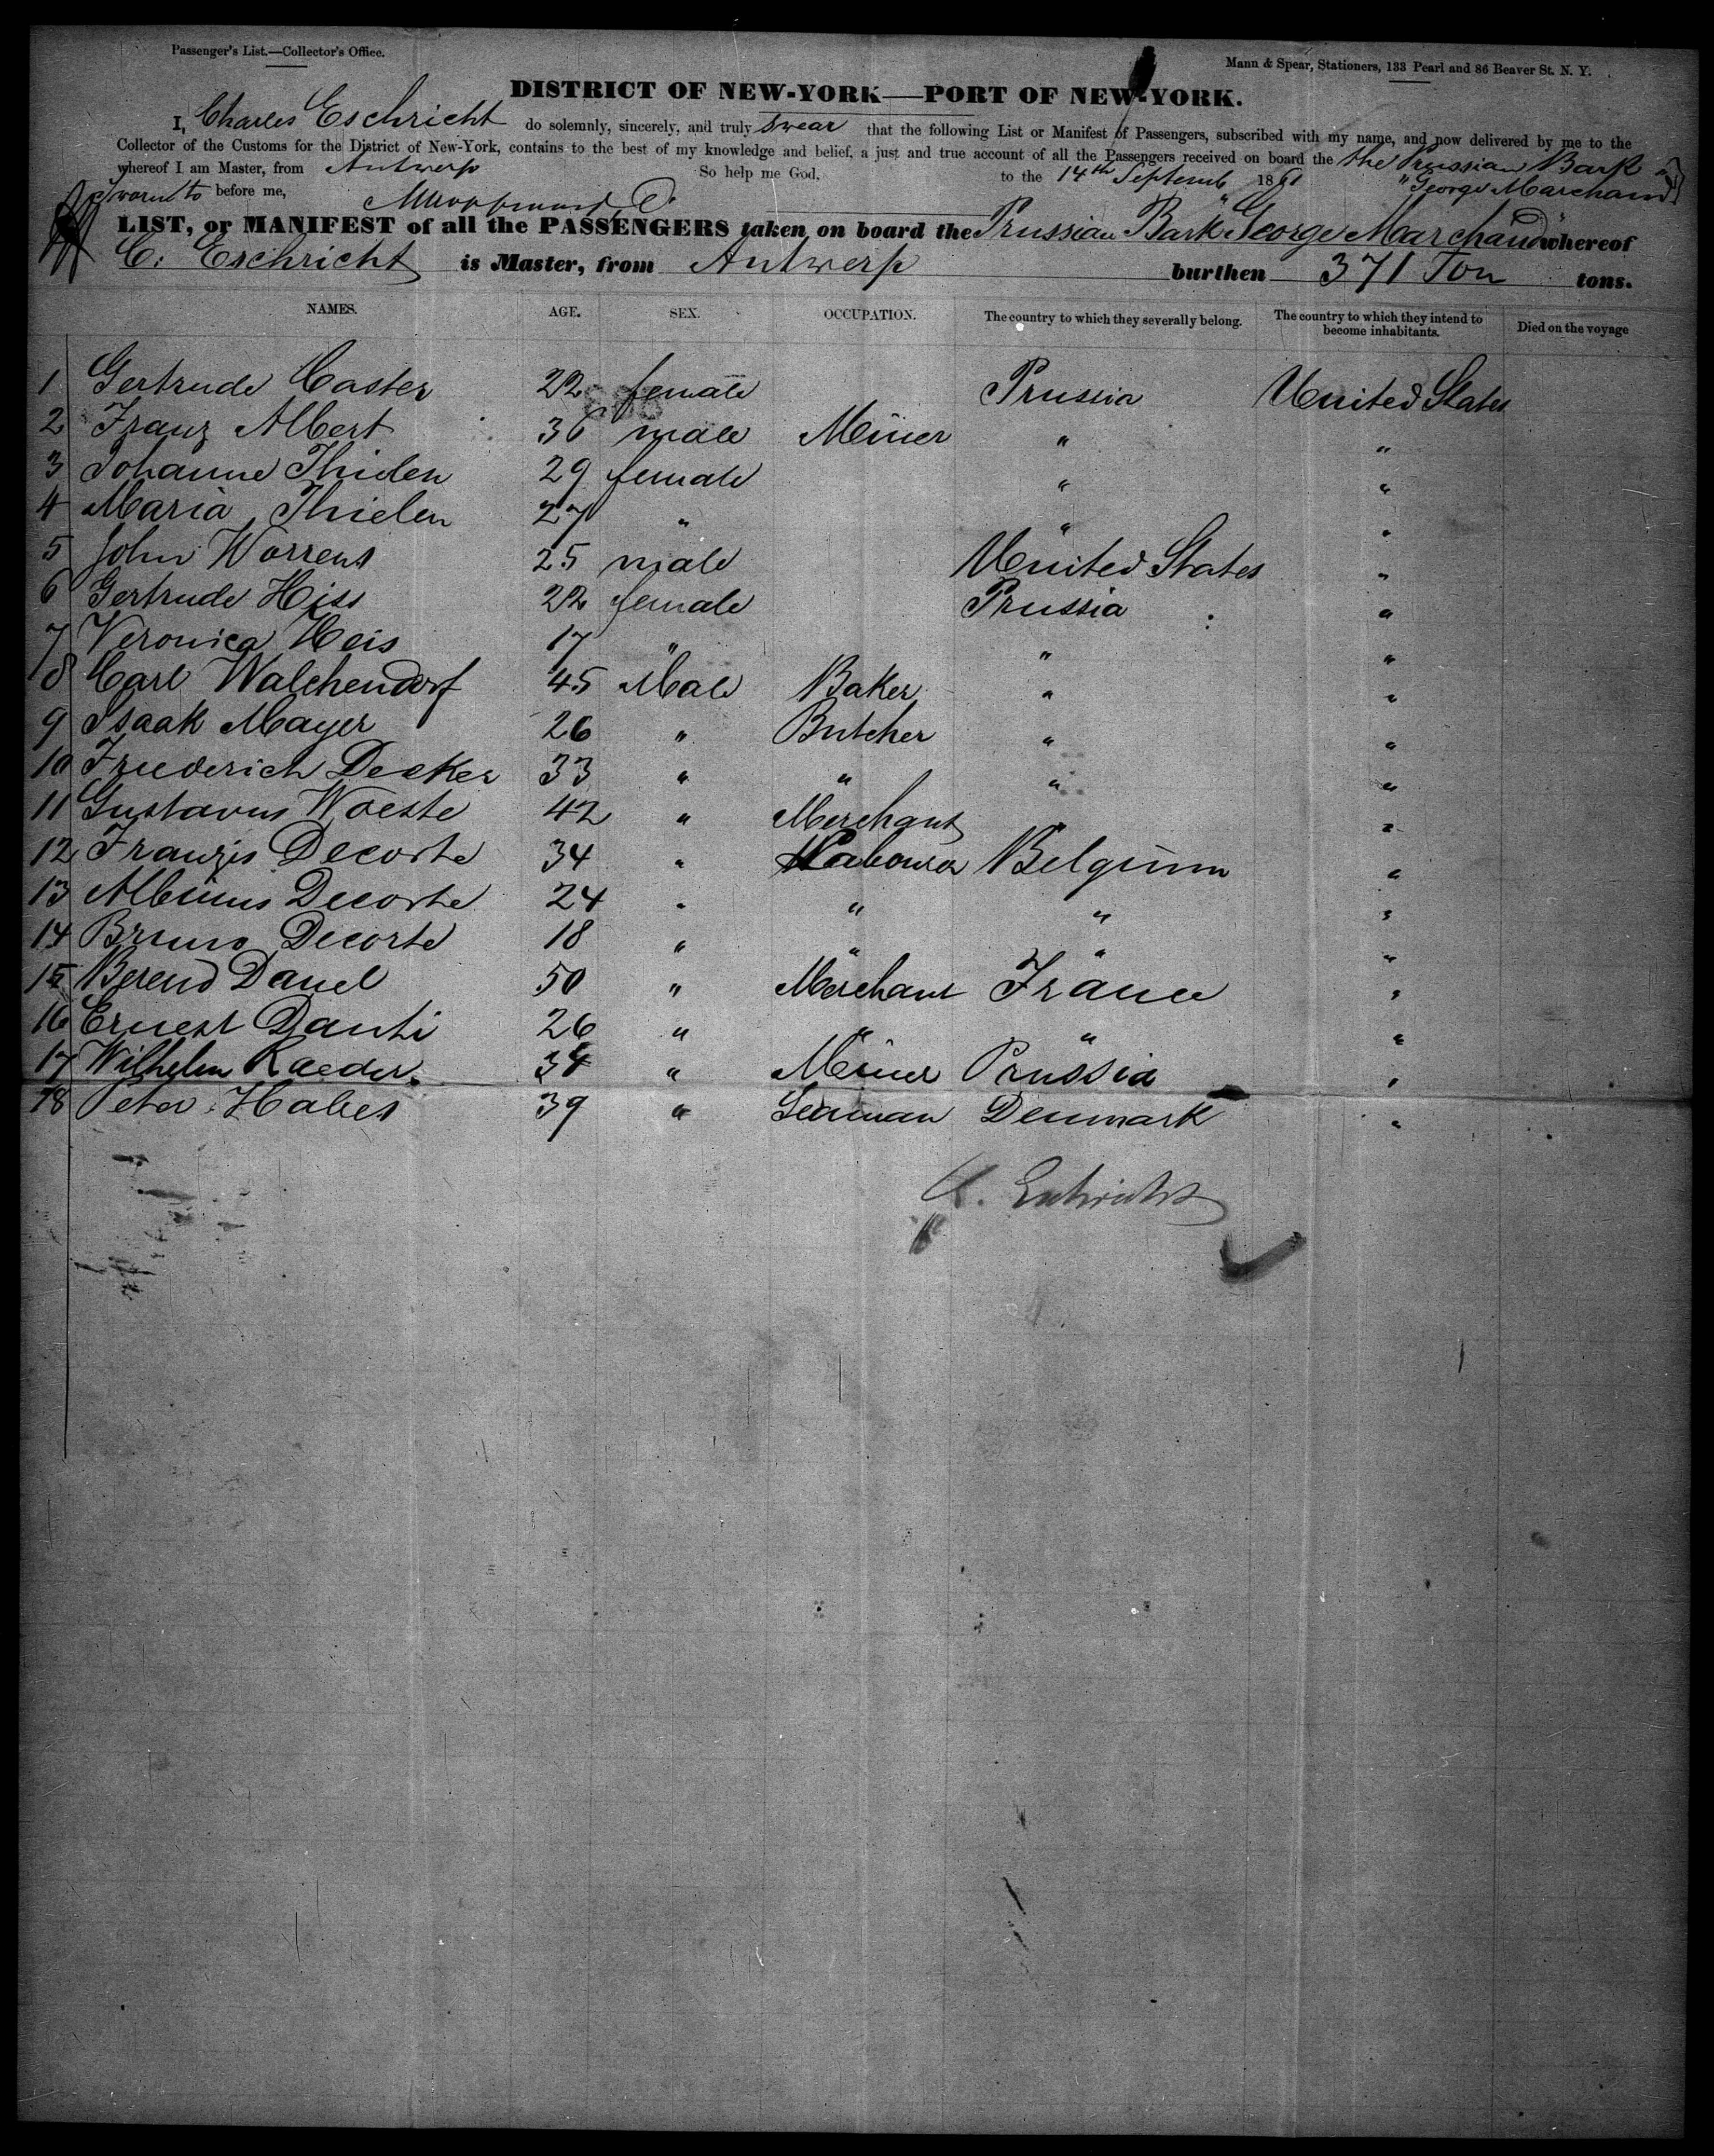 Passenger's List.—Collector's Office.
Mann & Spear, Stationers, 133 Pearl and 86 Beaver St. N. Y.
DISTRICT OF NEW-YORK—PORT OF NEW-YORK.
I, Charles Eschricht do solemnly, sincerely, and truly swear that the following List or Manifest of Passengers, subscribed with my name, and now delivered by me to the
Collector of the Customs for the District of New-York, contains to the best of my knowledge and belief, a just and true account of all the Passengers received on board the the Prussian Bark
whereof I am Master, from Antwerp So help me God. to the 14th Septemb 1861 "George Marchand"
Sworn to before me,
LIST, or MANIFEST of all the PASSENGERS taken on board the Prussian Bark "George Marchand" whereof
C. Eschricht is Master, from Antwerp burthen 371 Ton tons.
NAMES. AGE. SEX. OCCUPATION. The country to which they severally belong. The country to which they intend to become inhabitants. Died on the voyage
1 Gertrude Caster 22 female Prussia United States
2 Franz Albert 36 male Miner " "
3 Johanne Thielen 29 female " "
4 Maria Thielen 27 " " "
5 John Worrens 25 male United States "
6 Gertrude Hiss 22 female Prussia "
7 Veronica Heis 17 " " "
8 Carl Walchendorf 45 Male Baker " "
9 Isaak Mayer 26 " Butcher " "
10 Friederich Decker 33 " " " "
11 Gustavus Woeste 42 " Merchant "
12 Franzis Decorte 34 " Labourer Belgium "
13 Albinus Decorte 24 " " " "
14 Bruno Decorte 18 " " " "
15 Berend Danel 50 " Merchant France "
16 Ernest Danti 26 " " " "
17 Wilhelm Raeder 34 " Miner Prussia "
18 Peter Habes 39 " Seaman Denmark "
C. Eschricht